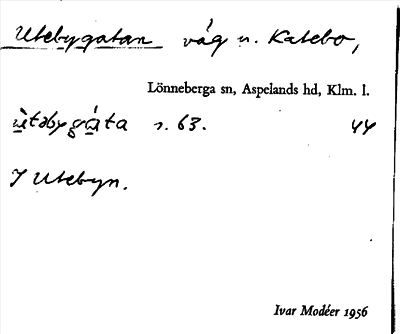 Utebygatan väg n. Katebo,
Lönneberga sn, Aspelands hd, Klm. l.
ùtəbygáta s. 63. 44
I Utebyn.
Ivar Modéer 1956